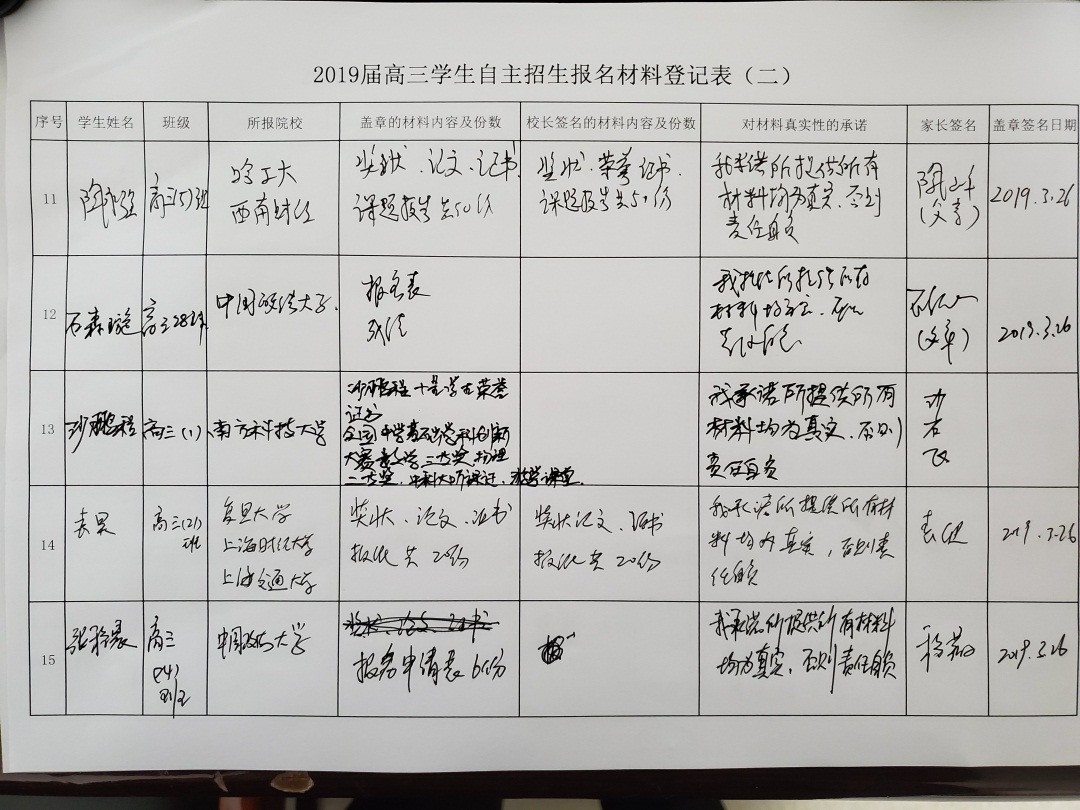 2019届高三学生自主招生报名材料登记表（二）
序号 学生姓名 班级 所报院校 盖章的材料内容及份数 校长签名的材料内容及份数 对材料真实性的承诺 家长签名 盖章签名日期
11
高三(5)班
哈工大
西南财经
奖状、论文、证书、
课题报告共50份
奖状、荣誉证书、
课题报告共50份
我承诺所提供所有
材料均为真实，否则
责任自负
(父亲)
2019.3.26
12
石森
中国政法大学.
报名表
成绩
我提供所有
材料均
2019.3.26
13
高三(1)
南方科技大学
荣誉
证书
全国中学
大赛数学二等奖,物理
二等奖,
我承诺所提供所有
材料均为真实，否则
责任自负
14
袁果
高三(2)
班
复旦大学
上海财经大学
上海交通大学
奖状、论文、证书
共20份
奖状论文、证书
共20份
我承诺所提供所有材
料均为真实，否则责
任自负
2019.3.26
15
高三
(4)
班
中国政法大学
报名申请表6份
我承诺所提供所有材料
均为真实，否则责任自负
2019.3.26